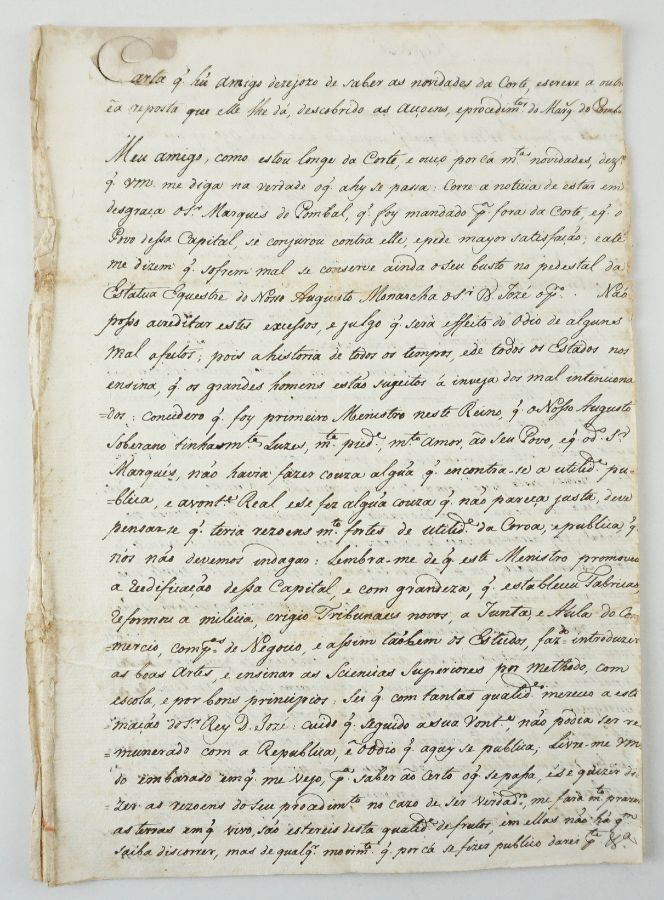 Carta q̃ hũ amigo dezejozo de saber as novidades da Corte, escreve a outro
ẽa reposta que elle lhe dá, descobrido as Auçoens, eprocedim.tos do Marq̃ do Pombal
Meu amigo, como estou longe da Corte, e ouço por cá m.tas novidades, dez.o
q̃ vm. me diga na verdade oq̃ ahy se passa: Corre a noticia de estar em
desgraça o Sr. Marques do Pombal, q̃ foy mandado p.a fora da Corte, eq̃ o
Povo dessa Capital, se conjurou contra elle, epede mayor satisfação; e até
me dizem q̃ sofrem mal se conserve ainda o seu busto no pedestal da
Estatua Equestre do Nosso Augusto Monarcha o Sr. D. Jozé o pr.o. Não
posso acreditar estes excessos, e julgo q̃ será effeito do Odio de alguns
mal afectos; pois a historia de todos os tempos, ede todos os Estados nos
ensina, q̃ os grandes homens estão sugeitos á inveja dos mal intenciona
=dos: concidero q̃ foy primeiro Menistro neste Reino, q̃ o Nosso Augusto
Soberano tinha m.tas Luzes, m.ta pied.e, m.to Amor, ão seu Povo, eq̃ od.o Sr.
Marquês, não havia fazer couza algũa q̃ encontra-se a utilid.e pu-
=blica, e avont.e Real e se fez algũa couza q̃ não pareça justa, deve
pensar-se q̃ teria rezoens m.to fortes de utilid.e da Coroa, epublica q̃
nós não devemos indagar: Lembra-me de q̃ este Menistro promoveu
a reedificação dessa Capital, e com grandeza, q̃ estableceu Fabricas,
reformou a milicia, erigio Tribunaes novos, a Junta, e Aula do Co-
mercio, comp.as de Negocio, e assim tãobem os Estudos, faz.do introduzir
as boas Artes, e ensinar as Sciencias Superiores por methodo, com
escola, e por bons principios: Sei q̃ com tantas qualid.es mereceo a esti
mação do Sr. Rey D. Jozé: cuido q̃ seguido a sua vont.e, não podia ser re
=munerado com a Republica, ẽ Odio q̃ aquy se publica; Livre-me vm
do embarado em q̃ me vejo, p.a saber ão certo oq̃ se passa, e se quizer di-
zer as rezoens do seu procedim.to no cazo de ser verdadr.o, me fará m.to prazer
as terras em q̃ vivo, são estereis desta qualid.e de frutos, em ellas não há q.m
saiba discorrer, mas de qualq.r movim.to q̃ por cá se fizer publico darei p.te &.a